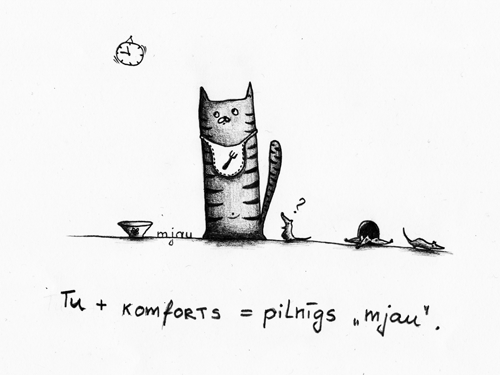 ?
mjau
Tu + komforts = pilnīgs „mjau".